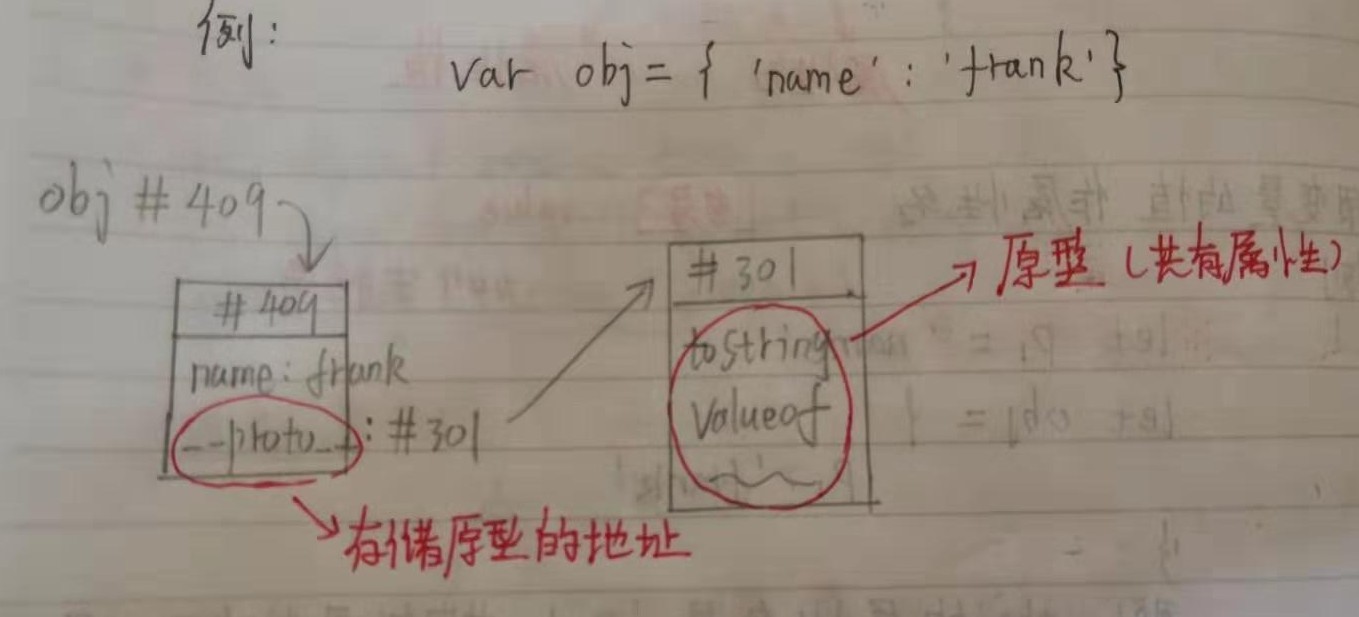 例:
var obj = { 'name' : 'frank' }
obj #409
#409
name: frank
__proto__: #301
存储原型的地址
#301
toString
valueof
原型 (共有属性)